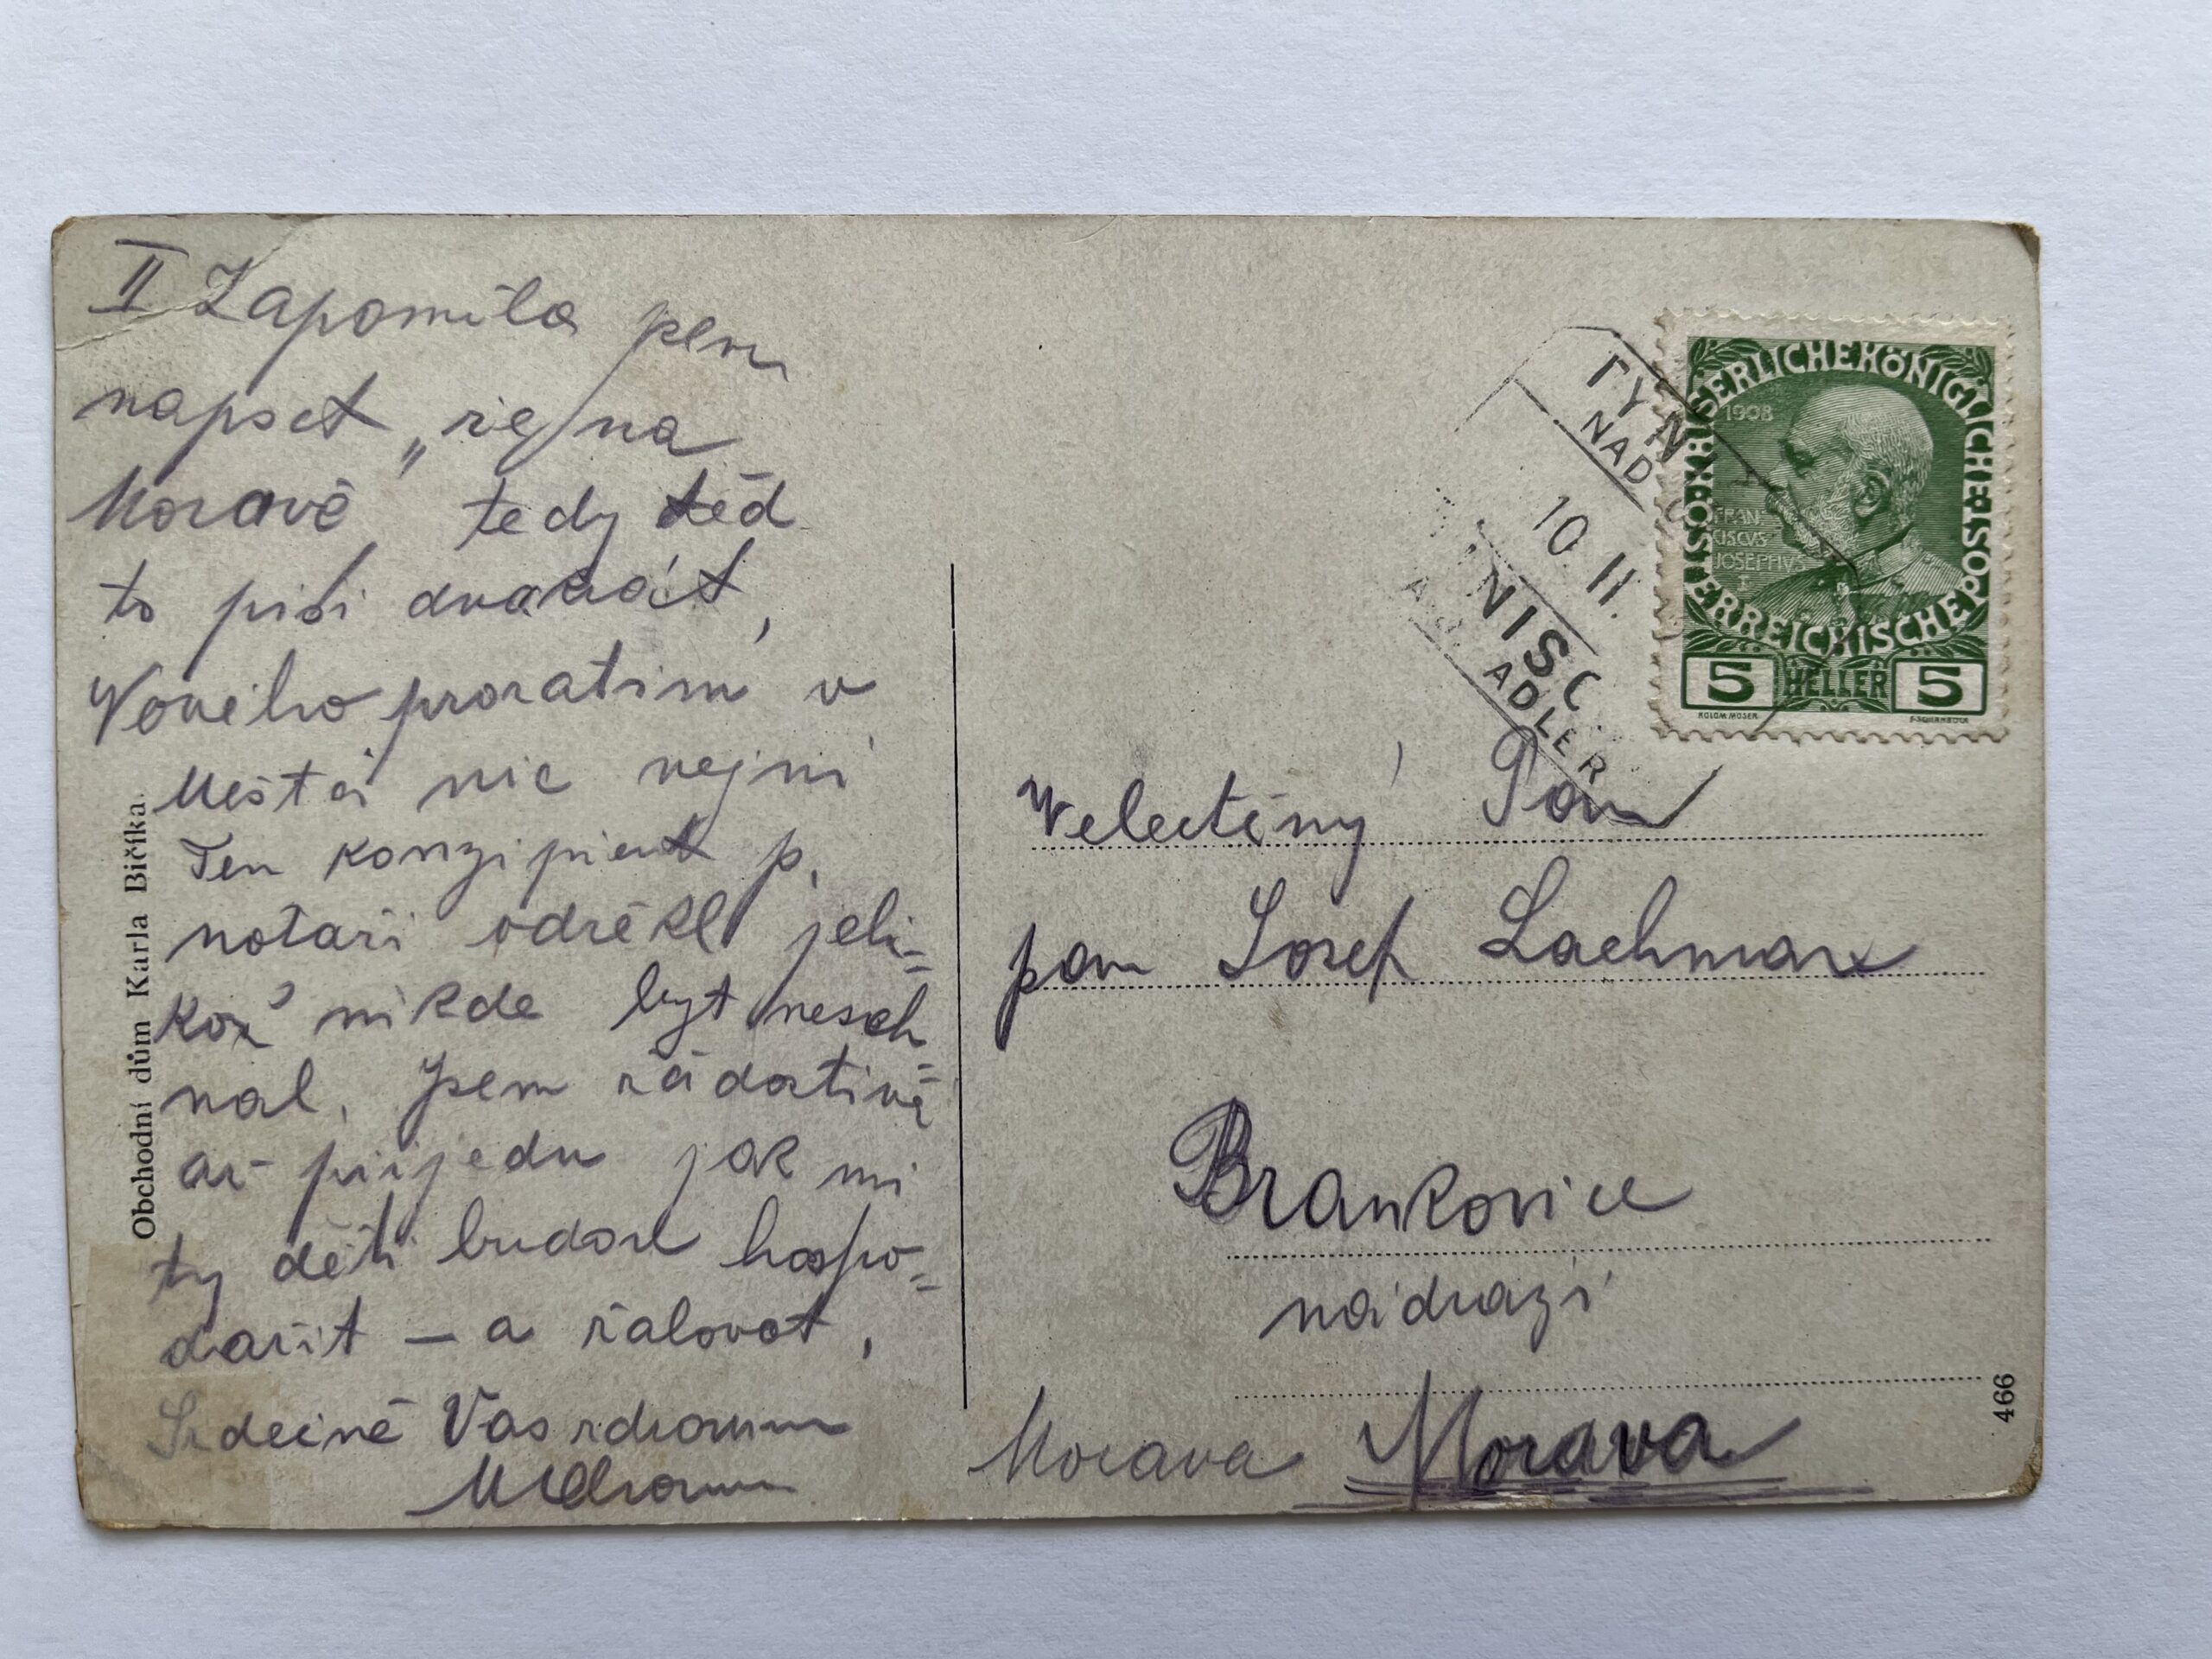 II Zapoměla jsem
napset „žig na
Moravě tedy těd
to piši dvakrát,
Nového prozatim v
Městci nic nejni
Ten konzipient p.
notaři odřekl jeli=
kož nikde byt neseh=
nal. Jsem žádostivá
až přijedu jak mi
ty děti budou hospo=
dařit – a žalovat,
Srdečně Vas zdravim
Obchodní dům Karla Bičíka.
TÝN
NAD
10 II.
NISC
ADLER
KAISERLICHEKÖNIGLICHE
ÖSTERREICHISCHEPOST
1908
FRAN
CISCVS
JOSEPHVS
I
5 HELLER 5
KOLOM. MOSER
F. SCHIRNBÖCK
Velectěný Pan
pan Josef Lachman
Brankovice
nádrazí
Morava Morava
466